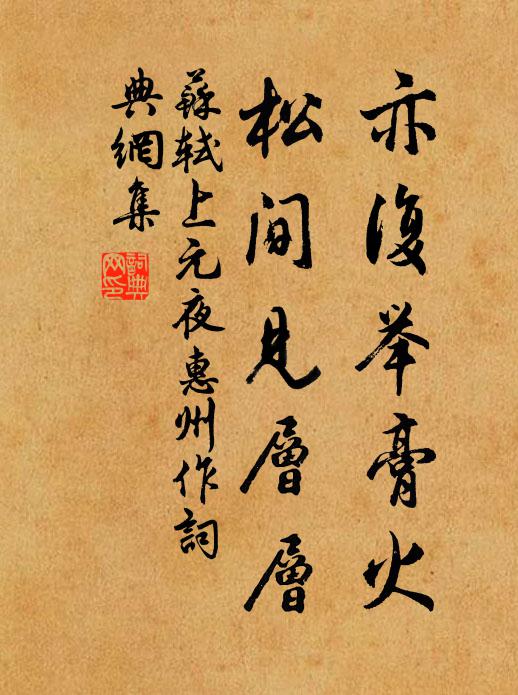 亦復举膏火
松間見層層
蘇軾上元夜惠州作詞
典網集
詞典网印